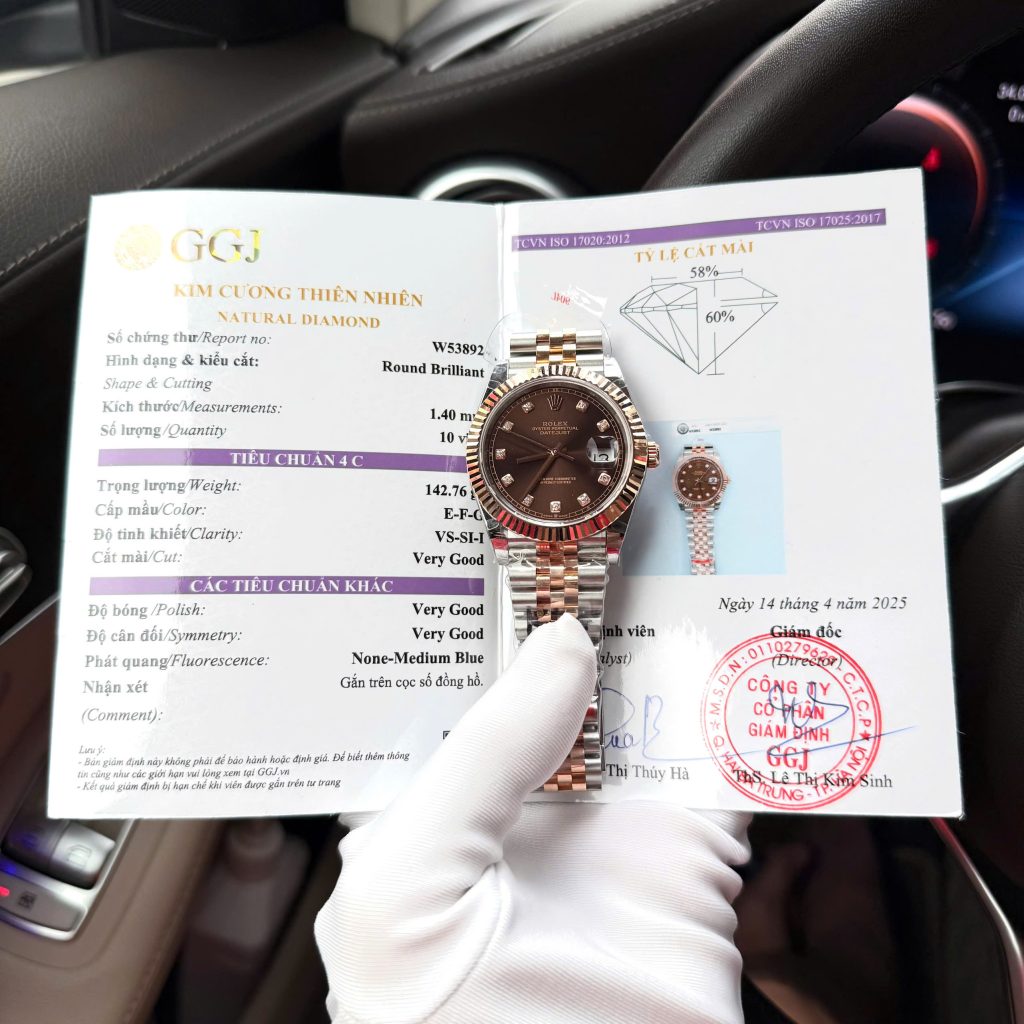 GGJ
KIM CƯƠNG THIÊN NHIÊN
NATURAL DIAMOND
Số chứng thư/Report no: W53892
Hình dạng & kiểu cắt: Round Brilliant
Shape & Cutting
Kích thước/Measurements: 1.40
Số lượng/Quantity 10
TIÊU CHUẨN 4 C
Trọng lượng/Weight: 142.76
Cấp mầu/Color: E-F-G
Độ tinh khiết/Clarity: VS-SI-I
Cắt mài/Cut: Very Good
CÁC TIÊU CHUẨN KHÁC
Độ bóng /Polish: Very Good
Độ cân đối/Symmetry: Very Good
Phát quang/Fluorescence: None-Medium Blue
Nhận xét Gắn trên cọc số đồng hồ.
(Comment):
Lưu ý:
- Bản giám định này không phải để bảo hành hoặc định giá. Để biết thêm thông
tin cũng như các giới hạn vui lòng xem tại GGJ.vn
- Kết quả giám định bị hạn chế khi viên được gắn trên tư trang
TCVN ISO 17020:2012 TCVN ISO 17025:2017
TỶ LỆ CẮT MÀI
58%
60%
904L
ROLEX
OYSTER PERPETUAL
DATEJUST
Ngày 14 tháng 4 năm 2025
Giám đốc
(Director)
CÔNG TY
CỔ PHẦN
GIÁM ĐỊNH
GGJ
Thị Thúy Hà
ThS. Lê Thị Kim Sinh